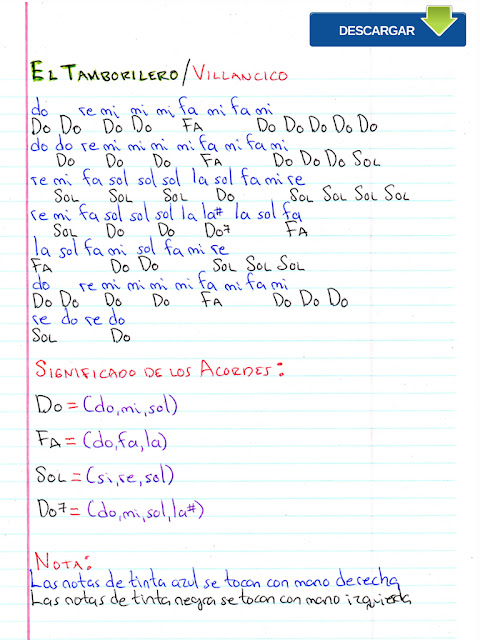 DESCARGAR
EL TAMBORILERO/VILLANCICO
do re mi mi mi fa mi fa mi
Do Do Do Do FA Do Do Do Do Do
do do re mi mi mi mi fa mi fa mi
Do Do Do FA Do Do Do SOL
re mi fa sol sol sol la sol fa mi re
SOL SOL SOL Do SOL SOL SOL SOL
re mi fa sol sol sol la la# la sol fa
SOL Do Do Do7 FA
la sol fa mi sol fa mi re
FA Do Do SOL SOL SOL
do re mi mi mi mi fa mi fa mi
Do Do Do Do FA Do Do Do
re do re do
SOL Do
SIGNIFICADO DE LOS ACORDES:
Do = (do, mi, sol)
FA = (do, fa, la)
SOL = (si, re, sol)
Do7 = (do, mi, sol, la#)
NOTA:
Las notas de tinta azul se tocan con mano derecha
Las notas de tinta negra se tocan con mano izquierda